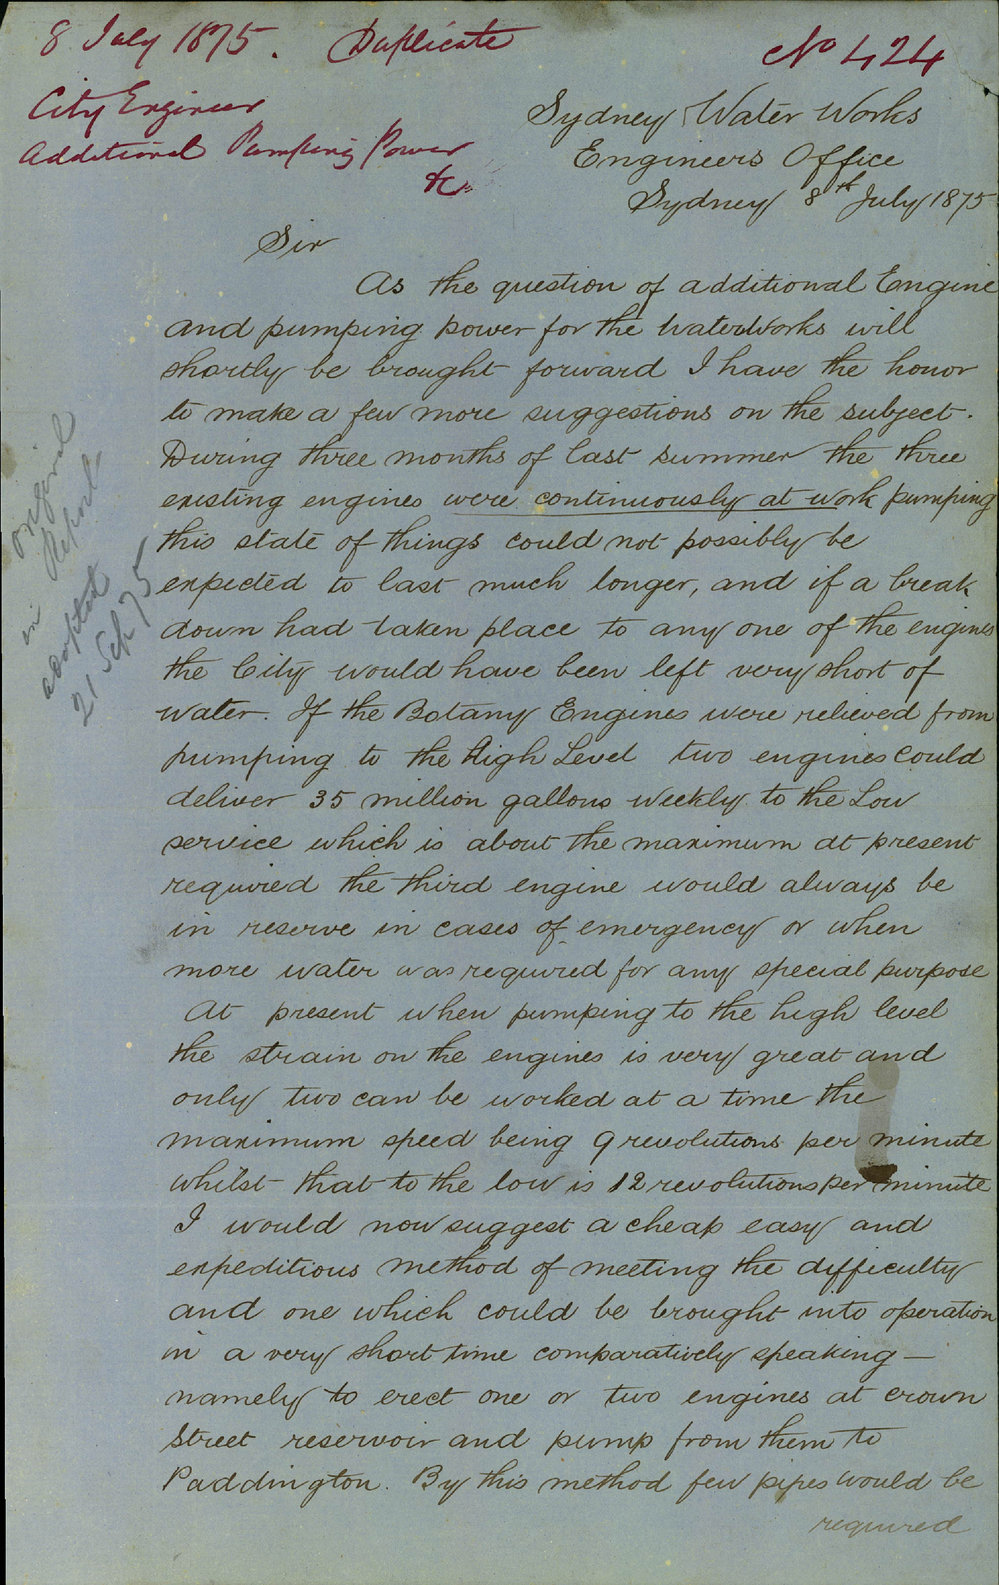 8 July 1875. Duplicate
No 424
City Engineer
Additional Pumping Power
&c
Sydney Water Works
Engineers Office
Sydney 8th July 1875
Sir
As the question of additional Engine
and pumping power for the WaterWorks will
shortly be brought forward I have the honor
to make a few more suggestions on the subject.
During three months of last summer the three
existing engines were continuously at work pumping
this state of things could not possibly be
expected to last much longer, and if a break
down had taken place to any one of the engines
the City would have been left very short of
water. If the Botany Engines were relieved from
pumping to the High Level two engines could
deliver 35 million gallons weekly to the Low
service which is about the maximum at present
required the third engine would always be
in reserve in cases of emergency or when
more water was required for any special purpose
At present when pumping to the high level
the strain on the engines is very great and
only two can be worked at a time the
maximum speed being 9 revolutions per minute
whilst that to the low is 12 revolutions per minute
I would now suggest a cheap easy and
expeditious method of meeting the difficulty
and one which could be brought into operation
in a very short time comparatively speaking —
namely to erect one or two engines at crown
Street reservoir and pump from them to
Paddington. By this method few pipes would be
required
original
in Report
adopted
21 Sep 75